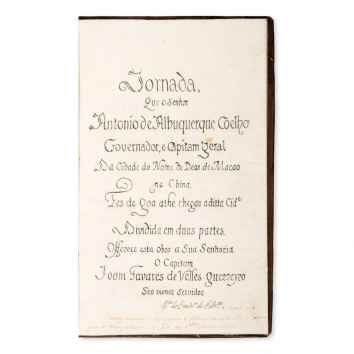 Jornada,
Que o Senhor
Antonio de Albuquerque Coelho
Governador, e Capitam Geral
Da Cidade do Nome de Deos de Macao
na China.
Fes de Goa athe chegar a ditta Cid.e
Dividida em duas partes.
Offerece esta obra a Sua Senhoria
O Capitam
Joam Tavares de Velles Guerreyro
Seu menor Servidor